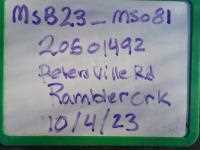 MSB23_MS081
20601492
Petersville Rd
Ramblercrk
10/4/23